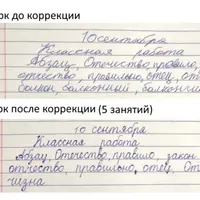 ок до коррекции
10 сентября
Классная работа
Абзац, Отечиство, провило,
отчество, правильно, отец, оте
балкон, балкончи
ок после коррекции (5 занятий)
10 сентября
Классная работа
Абзац, Отечество, правило, закон
отчество, правильно, отец, От
чизна.